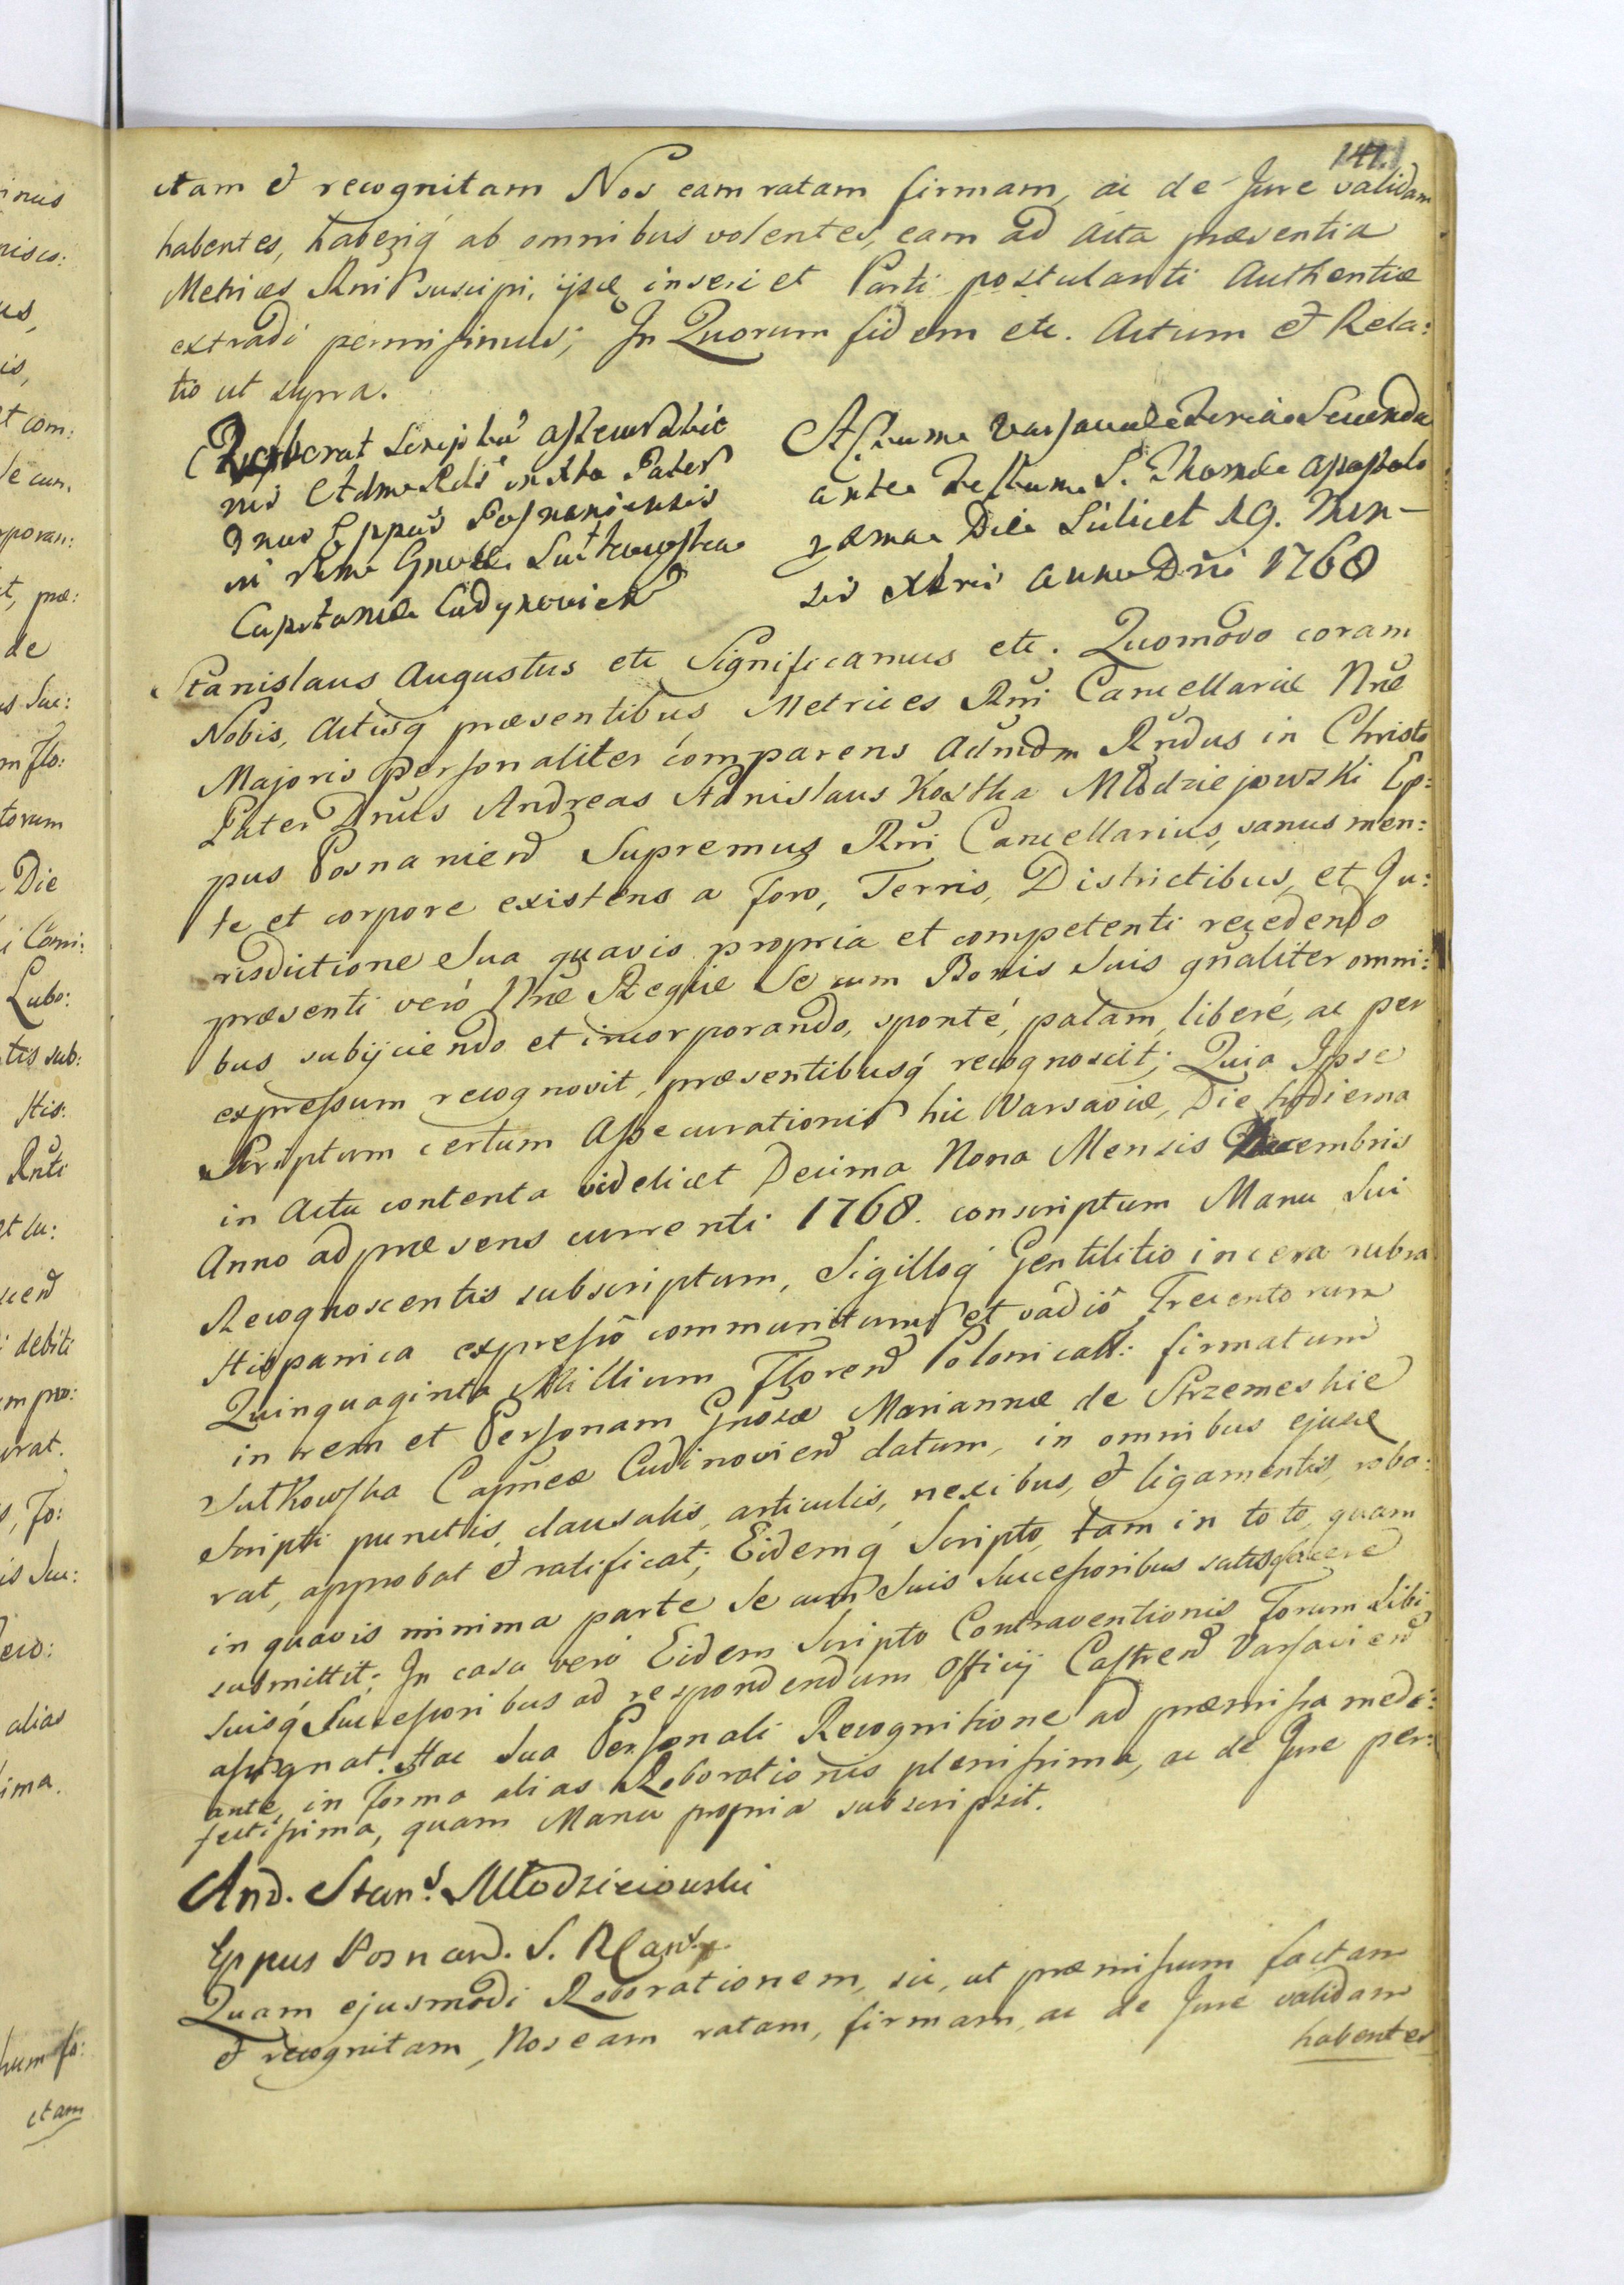 141.
ctam & recognitam Nos eam ratam firmam, ac de Jure validam
habentes, haberiq́ ab omnibus volentes, eam ad Acta præsentia
Metrices Rni suscipi, ijsq inseri et Parti postulanti Authenticè
extradi permisimus; In Quorum fidem etc. Actum & Rela:
tio ut supra.
Roborat Scriptũ
nis Admo Rds in Xto Pater
Dnus Eppus Posnaniensis
in rem Gnosæ Sutkowska
Capitaneæ Cudynovien
Actum Varsaviæ Feria Secunda
ante Festum S. Thomæ Apostoli
Die Scilicet 19. Men-
sis Xbris Anno Dñi 1768
Stanislaus Augustus etc Significamus etc. Quomodo coram
Nobis, Actisq́ præsentibus Metrices Rñi Cancellariæ Nræ
Majoris personaliter comparens Admdm Rndus in Christo
Pater Dnus Andreas Stanislaus Kostka Młodziejowski Ep:
pus Posnanien Supremus Rñi Cancellarius, sanus men:
te et corpore existens a foro, Terris, Districtibus, et Ju:
risdictione Sua quavis propria et competenti recedendo
præsenti verò Nræ Regiæ Se cum Bonis Suis gñaliter omni:
bus subijciendo et incorporando, sponté, palam, liberé, ac per
expressum recognovit, præsentibusq́ recognoscit; Quia Ipse
Scriptum certum Assecurationis hic Varsaviæ, Die hodierna
in Actu contenta videlicet Decima Nona Mensis Decembris
Anno ad præsens currenti 1768. conscriptum Manu Sui
Recognoscentis subscriptum, Sigilloq́ Gentilitio in cera rubra
Hispanica expresso communitum et vadiô Trecentorum
Quinquaginta Millium Floren Polonicall: firmatum
in rem et Personam Gnosæ Mariannæ de Strzemeskie
Sutkowska Capneæ Cudinovien datum, in omnibus ejusd
Scripti punctis, clausulis, articulis, nexibus, & ligamentis, robo:
rat, approbat & ratificat; Eidemq́ Scripto, tam in toto, quam
in quavis minima parte Se cum Suis Successoribus satisfacere
submittit; In casu verò Eidem Scripto Contraventionis Forum Sibi
Suisq́ Successoribus ad respondendum Officij Castren Varsavien
assignat. Hac Sua Personali Recognitione ad præmissa medi:
ante, in forma alias Roborationis plenissima, ac de Jure per:
fectissima, quam Manu propria subscripsit.
And. Stans. Młodzieiowski
Eppus Posnan. S. R Can
Quam ejusmodi Roborationem, sic, ut præmissum factam
& recognitam, Nos eam ratam, firmam, ac de Jure validam
habentes